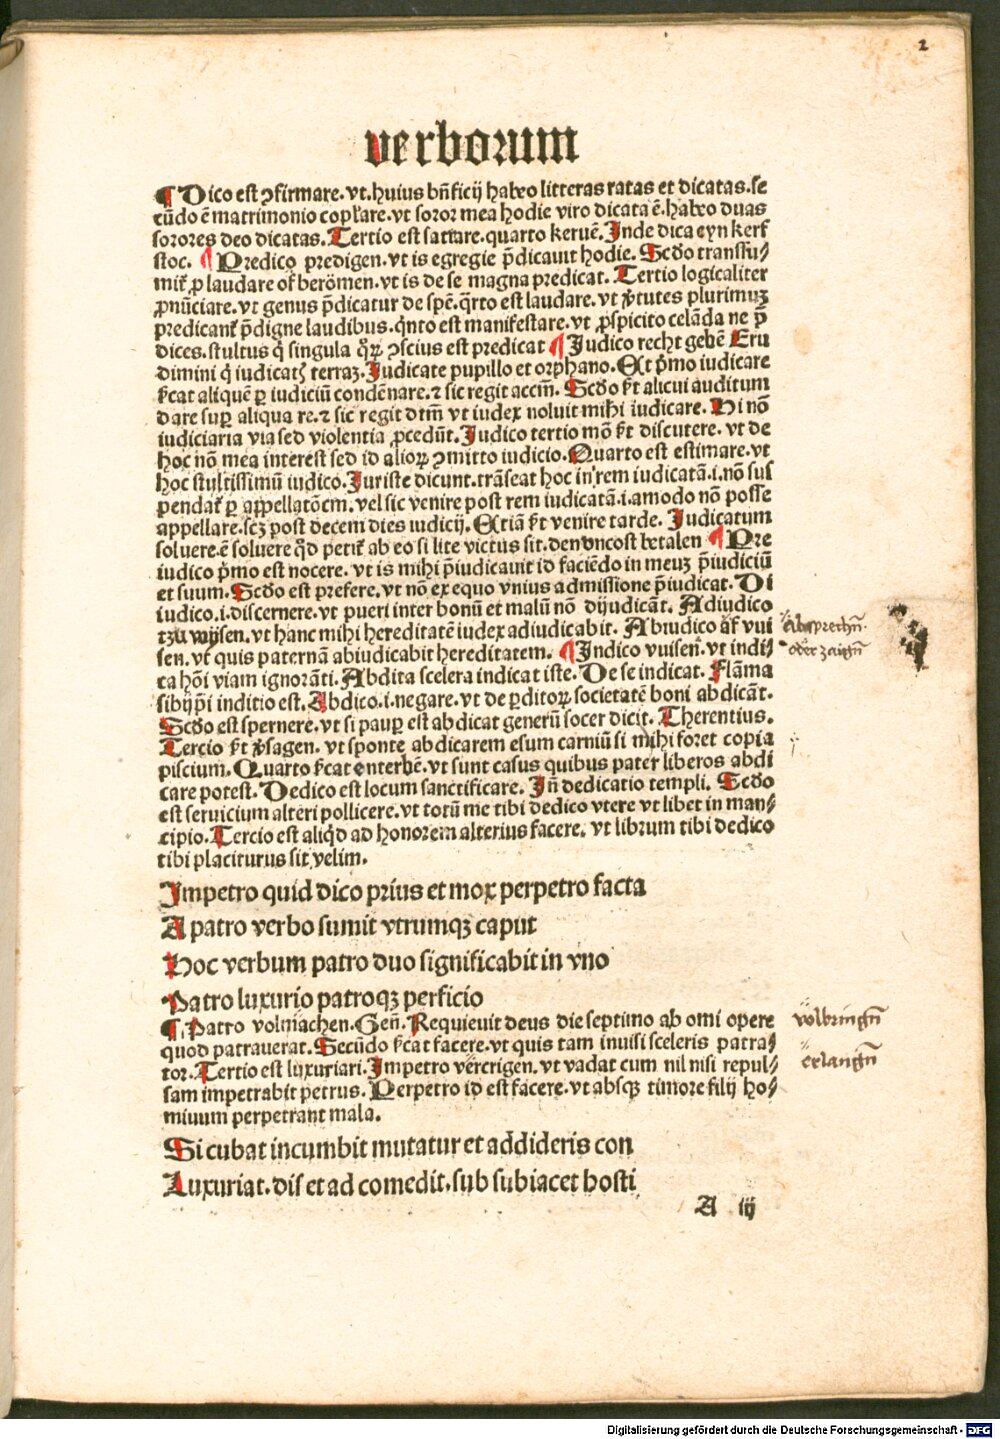 2
verborum
¶ Dico est ꝯfirmare. vt. huius bn̄ficij habeo litteras ratas et dicatas. se
cūdo ē matrimonio copl'are. vt soror mea hodie viro dicata ē. habeo duas
sorores deo dicatas. Tertio est satiare. quarto keruē. Inde dica eyn kerf
stoc. ¶ Predico predigen. vt is egregie p̄dicauit hodie. Scd̄o transsu⸗
mit̄ ꝓ laudare of berömen. vt is de se magna predicat. Tertio logicaliter
ꝓnūciare. vt genus p̄dicatur de spē. q̄rto est laudare. vt v̄tutes plurimuꝫ
predicant̄ p̄digne laudibus. q̄nto est manifestare. vt ꝓspicito celāda ne p̄
dices. stultus q̄ singula q̄ꝝ ꝯscius est predicat ¶ Iudico recht gebē Eru
dimini q̄ iudicatꝭ terraꝫ. Iudicate pupillo et orphano. Et p̄mo iudicare
s̄cat aliquē ꝑ iudiciū condēnare. ⁊ sic regit accm̄. Scd̄o s̄t alicui auditum
dare suꝑ aliqua re. ⁊ sic regit dtm̄ vt iudex noluit mihi iudicare. Hi nō
iudiciaria via sed violentia ꝓcedūt. Iudico tertio mō s̄t discutere. vt de
hoc nō mea interest sed id alioꝝ ꝯmitto iudicio. Quarto est estimare. vt
hoc stultissimū iudico. Iuriste dicunt. trāseat hoc in rem iudicatā. i. nō sus
pendat̄ ꝑ appellatōem. vel sic venire post rem iudicatā. i. amodo nō posse
appellare. scꝫ post decem dies iudicij. Etiā s̄t venire tarde. Iudicatum
soluere. ē soluere q̄d petit̄ ab eo si lite victus sit. den vncost betalen ¶ Pre
iudico p̄mo est nocere. vt is mihi p̄iudicauit id faciēdo in meuꝫ p̄iudiciū
et suum. Scd̄o est prefere. vt nō ex equo vnius admissione p̄iudicat. Di
iudico. i. discernere. vt pueri inter bonū et malū nō dijudicāt. Adiudico
tzu wysen. vt hanc mihi hereditatē iudex adiudicabit. Abiudico af vui
sen. vt quis paternā abiudicabit hereditatem. ¶ Indico vuisen. vt indi⸗
ca hōi viam ignorāti. Abdita scelera indicat iste. De se indicat. Flāma
sibijp̄i inditio est. Abdico. i. negare. vt de ꝑditoꝝ societatē boni abdicāt.
Scd̄o est spernere. vt si pauꝑ est abdicat generū socer dicit. Therentius.
Tercio s̄t v̄sagen. vt sponte abdicarem esum carniū si mihi foret copia
piscium. Quarto s̄cat enterbē. vt sunt casus quibus pater liberos abdi
care potest. Dedico est locum sanctificare. In̄ dedicatio templi. Scd̄o
est seruicium alteri pollicere. vt totū me tibi dedico vtere vt libet in man⸗
cipio. Tercio est aliq̄d ad honorem alterius facere. vt librum tibi dedico
tibi placiturus sit velim.
Impetro quid dico prius et mox perpetro facta
A patro verbo sumit vtrumqꝫ caput
Hoc verbum patro duo significabit in vno
Patro luxurio patroqꝫ perficio
¶ Patro volmachen. Gen̄. Requieuit deus die septimo ab omi opere
quod patrauerat. Secūdo s̄cat facere. vt quis tam inuisi sceleris patra⸗
tor. Tertio est luxuriari. Impetro vercrigen. vt vadat cum nil nisi repul⸗
sam impetrabit petrus. Perpetro id est facere. vt absqꝫ timore filij ho⸗
minum perpetrant mala.
Si cubat incumbit mutatur et addideris con
Luxuriat. dis et ad comedit. sub subiacet hosti
A iij
Absprechn̄
oder zaign̄
volbringn̄
erlangn̄
Digitalisierung gefördert durch die Deutsche Forschungsgemeinschaft - DFG